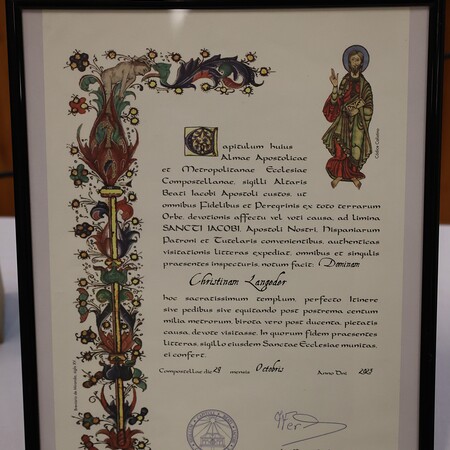 Capitulum huius
Almae Apostolicae
et Metropolitanae Ecclesiae
Compostellanae, sigilli Altaris
Beati Iacobi Apostoli custos, ut
omnibus Fidelibus et Peregrinis ex toto terrarum
Orbe, devotionis affectu vel voti causa, ad limina
SANCTI IACOBI, Apostoli Nostri, Hispaniarum
Patroni et Tutelaris convenientibus, authenticas
visitationis litteras expediat, omnibus et singulis
praesentes inspecturis, notum facit: Dominam
Christinam Langeder
hoc sacratissimum templum, perfecto Itinere
sive pedibus sive equitando post postrema centum
milia metrorum, birota vero post ducenta, pietatis
causa, devote visitasse. In quorum fidem praesentes
litteras, sigillo eiusdem Sanctae Ecclesiae munitas,
ei confert.
Compostellae die 28 mensis Octobris Anno Dni 2023
Codex Calixtinus